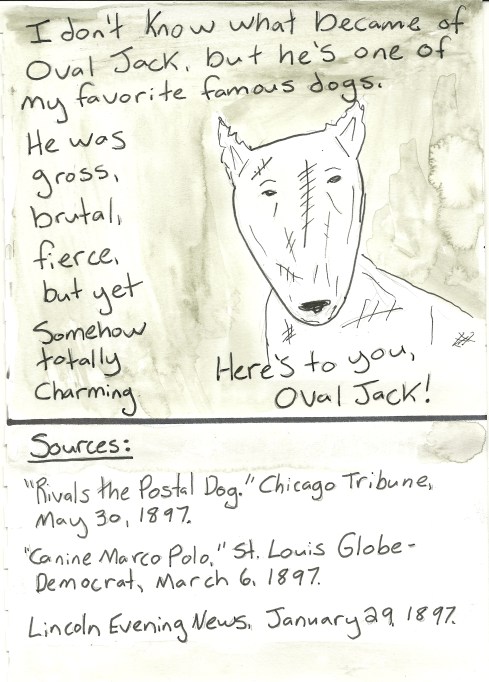 I don't know what became of
Oval Jack, but he's one of
my favorite famous dogs.
He was
gross,
brutal,
fierce,
but yet
Somehow
totally
Charming
Here's to you,
Oval Jack!
Sources:
"Rivals the Postal Dog." Chicago Tribune,
May 30, 1897.
"Canine Marco Polo," St. Louis Globe-
Democrat, March 6, 1897.
Lincoln Evening News, January 29, 1897.